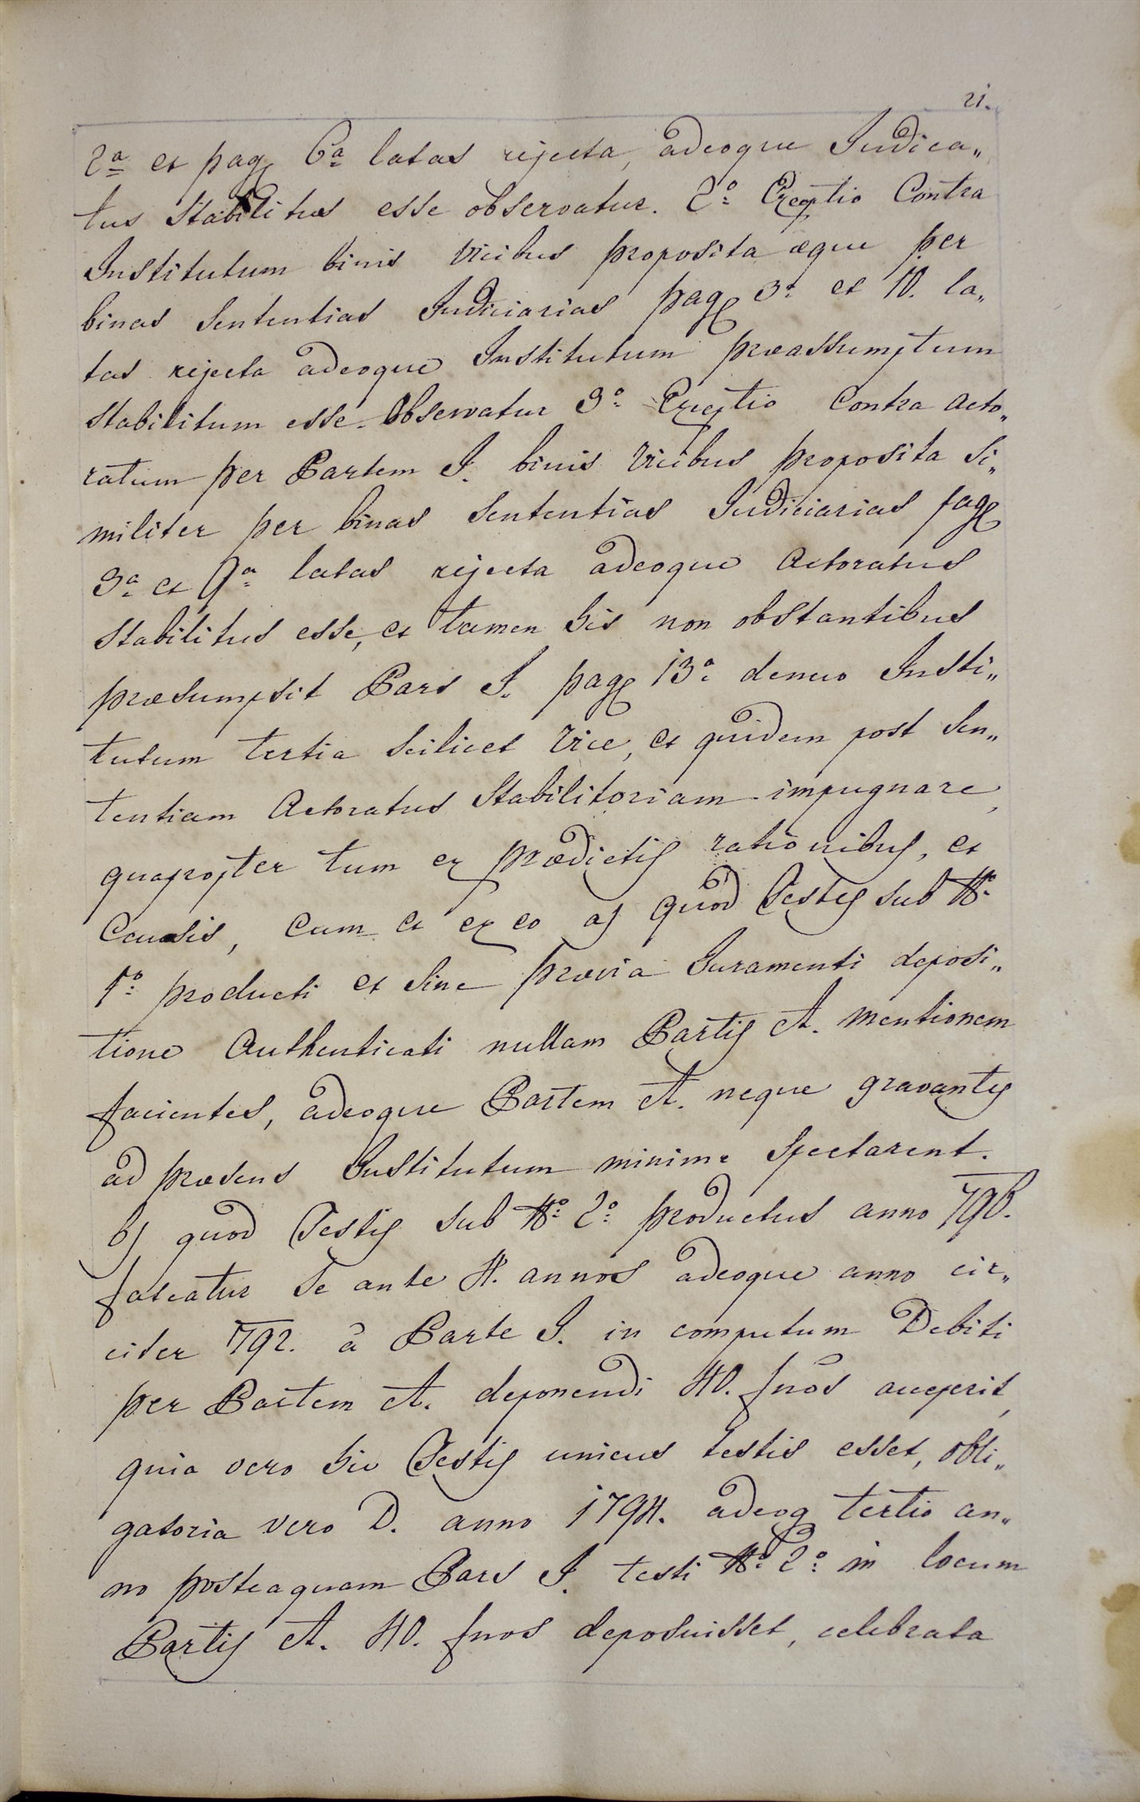 21.
2ª et pag 6ª latas rejecta, adeoque Judica„
tus stabilitus esse observatur. 2º Exceptio Contra
Institutum binis vicibus proposita æque per
binas Sententias Judiciarias pag 3ª et 10. la„
tas rejecta adeoque Institutum præassumptum
stabilitum esse observatur 3º Exceptio Contra Acto„
ratum per Partem I. binis vicibus proposita Si„
militer per binas Sententias Judiciarias pag
3ª et 9ª latas rejecta adeoque Actoratus
stabilitus esse, et tamen his non obstantibus
præsumpsit Pars I. pag 13ª denuo Insti„
tutum tertia scilicet vice, et quidem post Sen„
tentiam Actoratus Stabilitoriam impugnare,
quapropter tum ex prædictis rationibus, et
Causis, cum et ex eo a) quod Testes sub Nº
1º producti et sine prævia Juramenti deposi„
tione Authenticati nullam Partis A. mentionem
facientes, adeoque Partem A. neque gravantes
ad præsens Institutum minime spectarent.
b) quod Testis sub Nº 2º productus anno 796.
fateatur se ante 4. annos adeoque anno cir„
citer 792. à Parte I. in computum Debiti
per Partem A. deponendi 40. fnos acceperit,
quia vero hic Testis unicus testis esset, obli„
gatoria vero D. anno 1794. adeoq tertio an„
no posteaquam Pars I. testi Nº 2º in locum
Partis A. 40. fnos deposuisset, celebrata